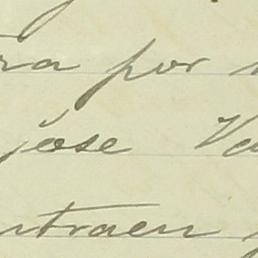 ra por
jose Va
ntraen